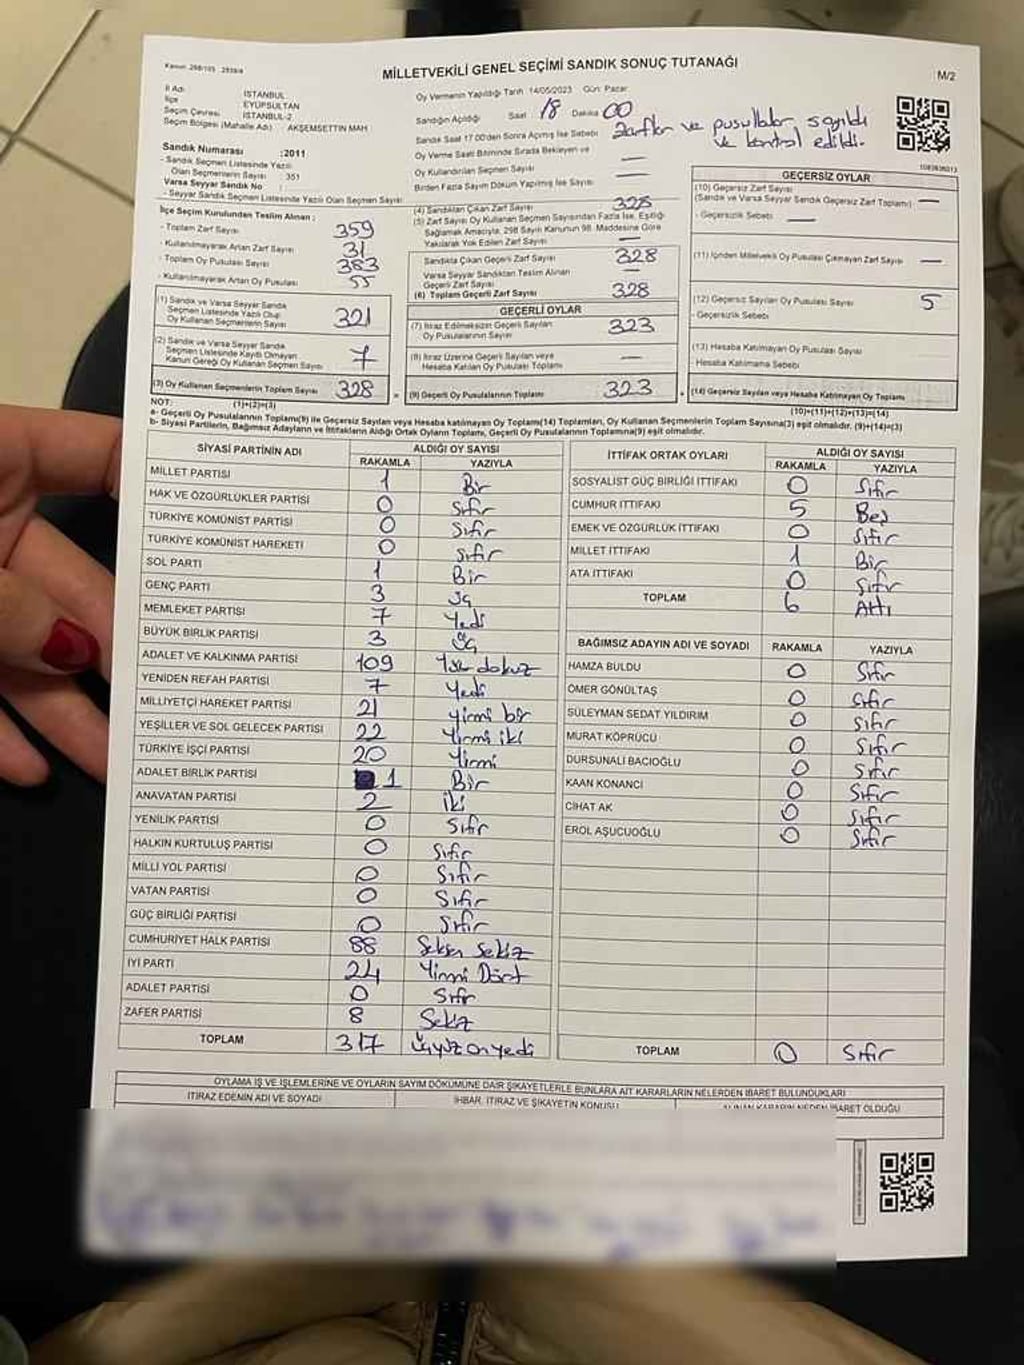 Kanun: 298/105 2839/4
MİLLETVEKİLİ GENEL SEÇİMİ SANDIK SONUÇ TUTANAĞI
M/2
İl Adı : İSTANBUL
İlçe : EYÜPSULTAN
Seçim Çevresi : İSTANBUL-2
Seçim Bölgesi (Mahalle Adı) : AKŞEMSETTİN MAH.
Sandık Numarası : 2011
- Sandık Seçmen Listesinde Yazılı
Olan Seçmenlerin Sayısı : 351
Varsa Seyyar Sandık No :
- Seyyar Sandık Seçmen Listesinde Yazılı Olan Seçmen Sayısı
Oy Vermenin Yapıldığı Tarih 14/05/2023 Gün: Pazar
Sandığın Açıldığı Saat 18 Dakika 00
Sandık Saat 17.00'den Sonra Açılmış İse Sebebi: Zarflar ve pusullalar sayıldı
ve kontrol edildi.
Oy Verme Saati Bitiminde Sırada Bekleyen ve
Oy Kullandırılan Seçmen Sayısı —
Birden Fazla Sayım Döküm Yapılmış İse Sayısı —
İlçe Seçim Kurulundan Teslim Alınan :
- Toplam Zarf Sayısı 359
- Kullanılmayarak Artan Zarf Sayısı 31
- Toplam Oy Pusulası Sayısı 383
- Kullanılmayarak Artan Oy Pusulası 55
(1) Sandık ve Varsa Seyyar Sandık
Seçmen Listesinde Yazılı Olup
Oy Kullanan Seçmenlerin Sayısı 321
(2) Sandık ve Varsa Seyyar Sandık
Seçmen Listesinde Kayıtlı Olmayan
Kanun Gereği Oy Kullanan Seçmen Sayısı 7
(3) Oy Kullanan Seçmenlerin Toplam Sayısı 328
(4) Sandıktan Çıkan Zarf Sayısı 328
(5) Zarf Sayısı Oy Kullanan Seçmen Sayısından Fazla İse, Eşitliği
Sağlamak Amacıyla, 298 Sayılı Kanunun 98. Maddesine Göre
Yakılarak Yok Edilen Zarf Sayısı —
Sandıkta Çıkan Geçerli Zarf Sayısı 328
Varsa Seyyar Sandıktan Teslim Alınan
Geçerli Zarf Sayısı —
(6) Toplam Geçerli Zarf Sayısı 328
GEÇERLİ OYLAR
(7) İtiraz Edilmeksizin Geçerli Sayılan
Oy Pusulalarının Sayısı 323
(8) İtiraz Üzerine Geçerli Sayılan veya
Hesaba Katılan Oy Pusulası Toplamı —
(9) Geçerli Oy Pusulalarının Toplamı 323
GEÇERSİZ OYLAR
(10) Geçersiz Zarf Sayısı
(Sandık ve Varsa Seyyar Sandık Geçersiz Zarf Toplamı) —
- Geçersizlik Sebebi —
(11) İçinden Milletvekili Oy Pusulası Çıkmayan Zarf Sayısı —
(12) Geçersiz Sayılan Oy Pusulası Sayısı 5
- Geçersizlik Sebebi
(13) Hesaba Katılmayan Oy Pusulası Sayısı
- Hesaba Katılmama Sebebi
(14) Geçersiz Sayılan veya Hesaba Katılmayan Oy Toplamı
NOT: (1)+(2)=(3)
(10)+(11)+(12)+(13)=(14)
a- Geçerli Oy Pusulalarının Toplamı(9) ile Geçersiz Sayılan veya Hesaba katılmayan Oy Toplamı(14) Toplamları, Oy Kullanan Seçmenlerin Toplam Sayısına(3) eşit olmalıdır. (9)+(14)=(3)
b- Siyasi Partilerin, Bağımsız Adayların ve İttifakların Aldığı Ortak Oyların Toplamı, Geçerli Oy Pusulalarının Toplamına(9) eşit olmalıdır.
SİYASİ PARTİNİN ADI ALDIĞI OY SAYISI
RAKAMLA YAZIYLA
MİLLET PARTİSİ 1 Bir
HAK VE ÖZGÜRLÜKLER PARTİSİ 0 Sıfır
TÜRKİYE KOMÜNİST PARTİSİ 0 Sıfır
TÜRKİYE KOMÜNİST HAREKETİ 0 Sıfır
SOL PARTİ 1 Bir
GENÇ PARTİ 3 Üç
MEMLEKET PARTİSİ 7 Yedi
BÜYÜK BİRLİK PARTİSİ 3 Üç
ADALET VE KALKINMA PARTİSİ 109 Yüz dokuz
YENİDEN REFAH PARTİSİ 7 Yedi
MİLLİYETÇİ HAREKET PARTİSİ 21 Yirmi bir
YEŞİLLER VE SOL GELECEK PARTİSİ 22 Yirmi iki
TÜRKİYE İŞÇİ PARTİSİ 20 Yirmi
ADALET BİRLİK PARTİSİ 1 Bir
ANAVATAN PARTİSİ 2 iki
YENİLİK PARTİSİ 0 Sıfır
HALKIN KURTULUŞ PARTİSİ 0 Sıfır
MİLLİ YOL PARTİSİ 0 Sıfır
VATAN PARTİSİ 0 Sıfır
GÜÇ BİRLİĞİ PARTİSİ 0 Sıfır
CUMHURİYET HALK PARTİSİ 88 Seksen Sekiz
İYİ PARTİ 24 Yirmi Dört
ADALET PARTİSİ 0 Sıfır
ZAFER PARTİSİ 8 Sekiz
TOPLAM 317 Üçyüz onyedi
İTTİFAK ORTAK OYLARI ALDIĞI OY SAYISI
RAKAMLA YAZIYLA
SOSYALİST GÜÇ BİRLİĞİ İTTİFAKI 0 Sıfır
CUMHUR İTTİFAKI 5 Beş
EMEK VE ÖZGÜRLÜK İTTİFAKI 0 Sıfır
MİLLET İTTİFAKI 1 Bir
ATA İTTİFAKI 0 Sıfır
TOPLAM 6 Altı
BAĞIMSIZ ADAYIN ADI VE SOYADI RAKAMLA YAZIYLA
HAMZA BULDU 0 Sıfır
ÖMER GÖNÜLTAŞ 0 Sıfır
SÜLEYMAN SEDAT YILDIRIM 0 Sıfır
MURAT KÖPRÜCÜ 0 Sıfır
DURSUNALİ BACIOĞLU 0 Sıfır
KAAN KONANCI 0 Sıfır
CİHAT AK 0 Sıfır
EROL AŞUCUOĞLU 0 Sıfır
TOPLAM 0 Sıfır
OYLAMA İŞ VE İŞLEMLERİNE VE OYLARIN SAYIM DÖKÜMÜNE DAİR ŞİKAYETLERLE BUNLARA AİT KARARLARIN NELERDEN İBARET BULUNDUKLARI
İTİRAZ EDENİN ADI VE SOYADI İHBAR, İTİRAZ VE ŞİKAYETİN KONUSU ALINAN KARARIN NEDEN İBARET OLDUĞU